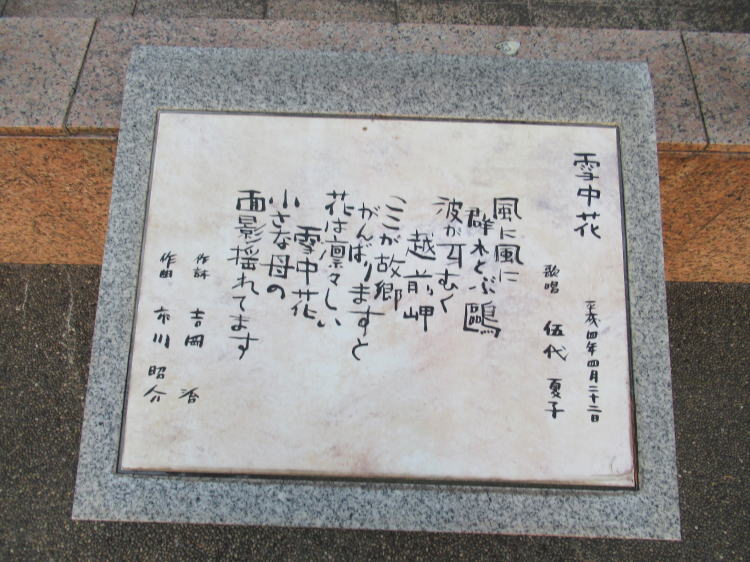 雪中花
平成四年四月二十二日
歌唱 伍代夏子
風に風に
群れとぶ鷗
波が耳むく
越前岬
ここが故郷
がんばりますと
花は凛々しい
雪中花
小さな母の
面影揺れてます
作詩 吉岡 治
作曲 市川昭介